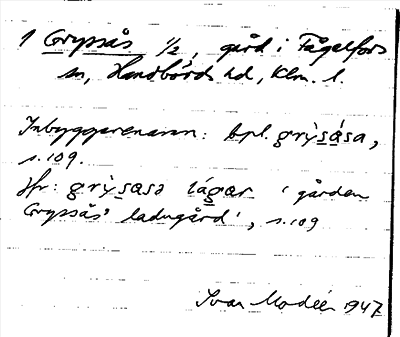 1 Gryssås 1/2, gård i Fågelfors
sn, Handbörds hd, Klm. l.
Inbyggarenamn: bpl. grỳsa̱sa,
s. 109.
Jfr: grỳsasə lágar 'gården
Gryssås' ladugård', s. 109
Ivar Modéer 1947